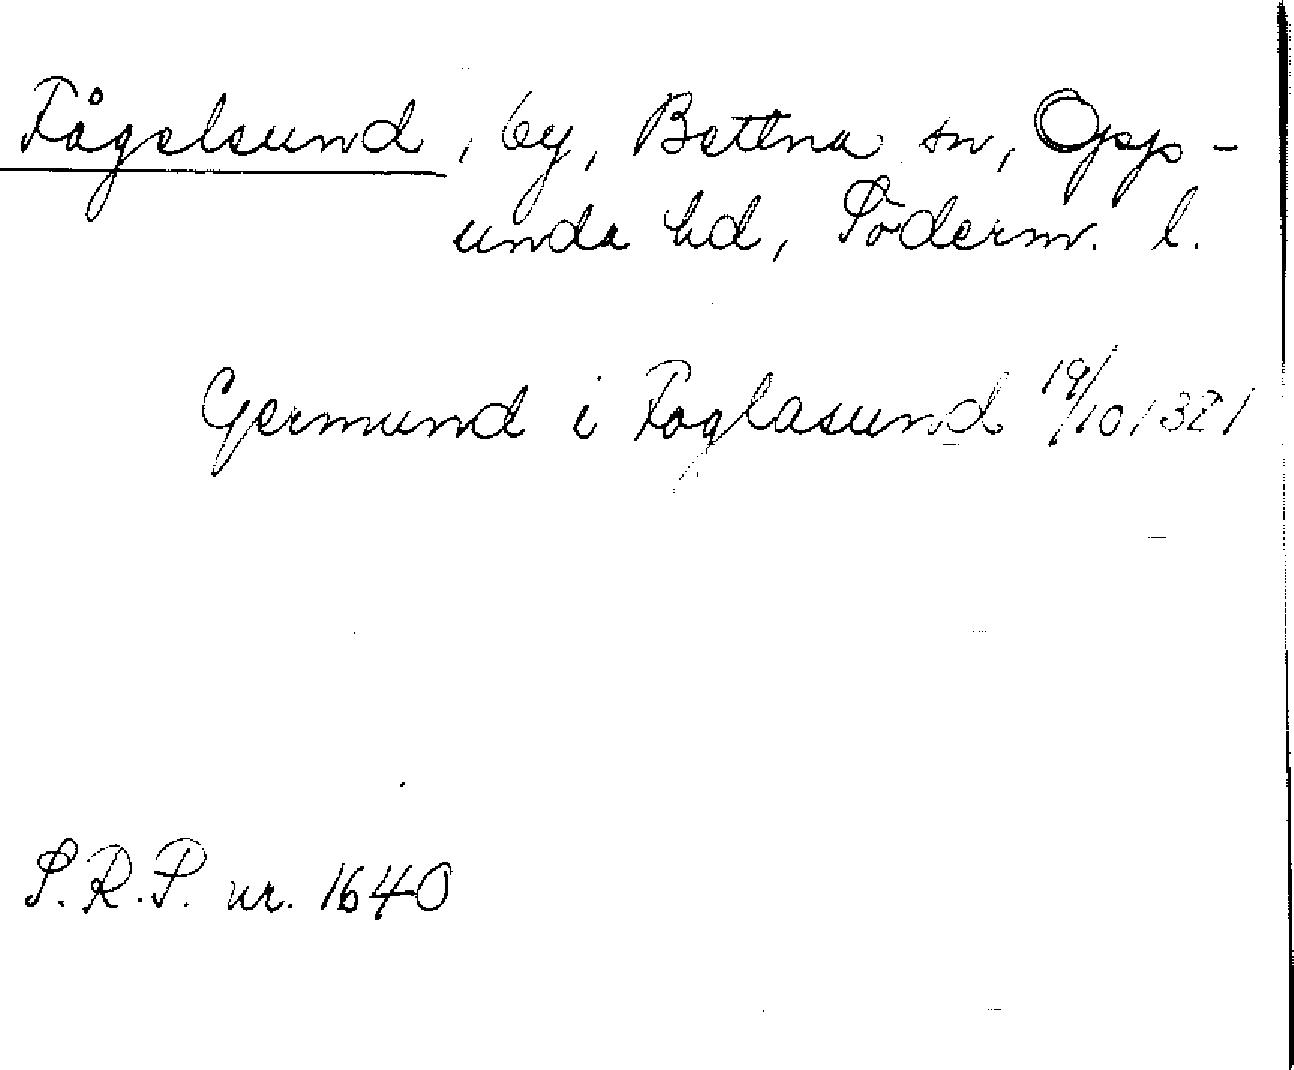 Fågelsund, by, Bettna sn, Opp-
unda hd, Söderm. l.
Germund i Foglasund 19/10 1321
S.R.P. nr. 1640